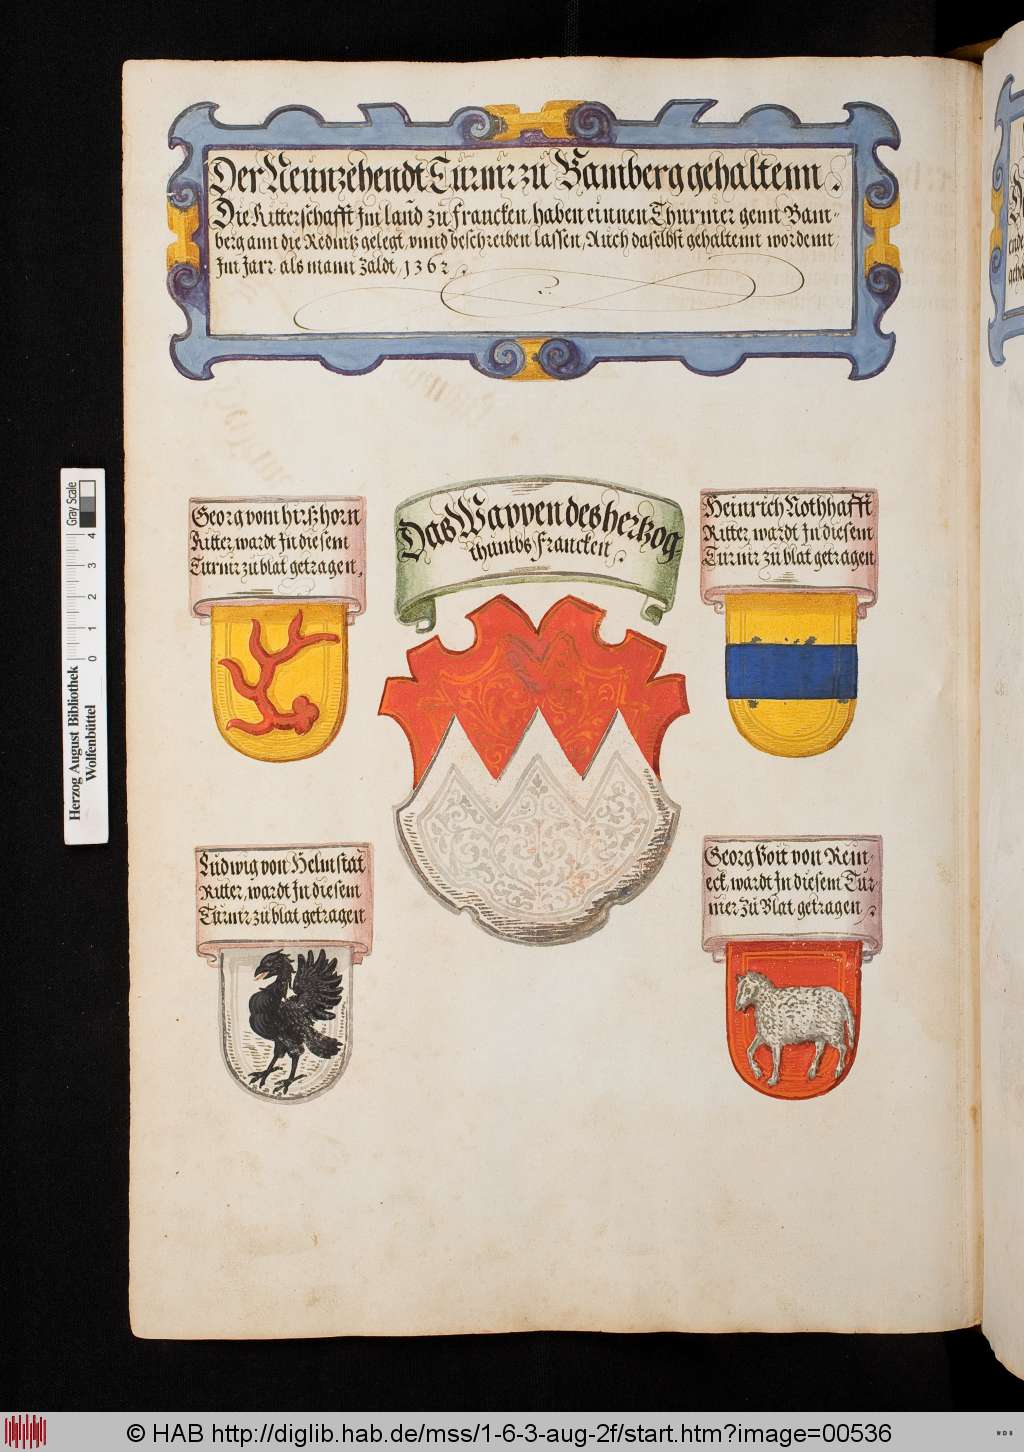 Der Neunzehendt Turnir zu Bamberg gehaltenn.
Die Ritterschafft Jm land zu francken, haben einnen Thurnier genn Bam-
berg ann die Rednitz gelegt, vnnd beschreiben lassen, Auch daselbst gehaltenn wordenn,
Jm Jarr als mann Zaldt, 1362.
Das Wappen des hertzog-
thumbs francken.
Georg vom hirßhorn
Ritter, wardt Jn diesem
Turnir zu blat getragen,
Heinrich Nothhafft
Ritter, wardt Jn diesem
Turnir zu blat getragen
Ludwig von Helmstat
Ritter, wardt Jn diesem
Turnir zu blat getragen
Georg Voit von Rein-
eck, wardt Jn diesem Tur-
nier Zu Blat getragen.
Herzog August Bibliothek
Wolfenbüttel
Gray Scale
0 1 2 3 4
© HAB http://diglib.hab.de/mss/1-6-3-aug-2f/start.htm?image=00536